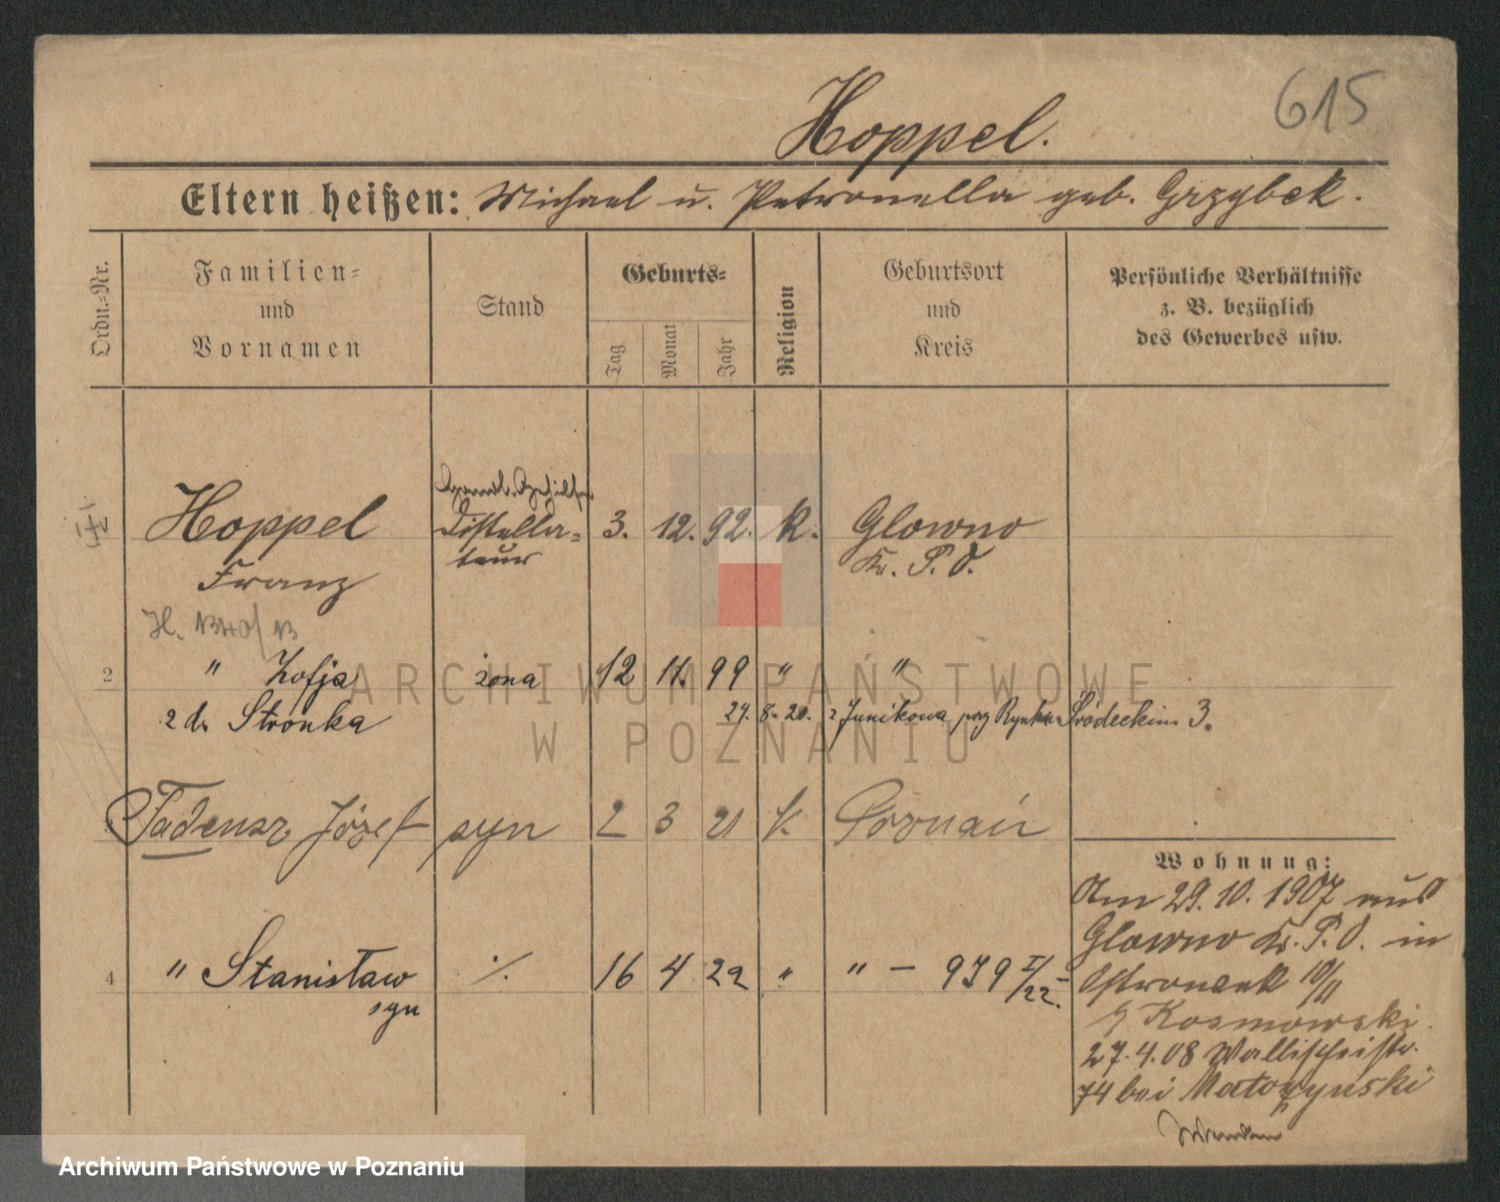 615
Hoppel.
Eltern heißen: Michael u. Petronella geb. Grzybek.
Ordn.=Nr.
Familien=
und
Vornamen
Stand
Geburts=
Tag
Monat
Jahr
Religion
Geburtsort
und
Kreis
Persönliche Verhältnisse
z. B. bezüglich
des Gewerbes usw.
Hoppel Distella= 3. 12. 92. k. Glowno
Franz teur Kr. P. O.
2 " Zofja żona 12 11. 99 " "
2 d. Stronka 24. 8. 20. z Junikowa przy Rynku Śródeckim 3.
Tadeusz Józef syn 2 3 21 k. Poznań
Wohnung:
Am 29. 10. 1907 aus
Glowno Kr. P. O. in
Ostrowek 10/11
b/ Kosmowski.
27. 4. 08 Wallischeistr.
74 bei Matoszynski
4 " Stanisław ./. 16 4 22 " " — 939 I/22.
syn
ARCHIWUM PAŃSTWOWE
W POZNANIU
Archiwum Państwowe w Poznaniu